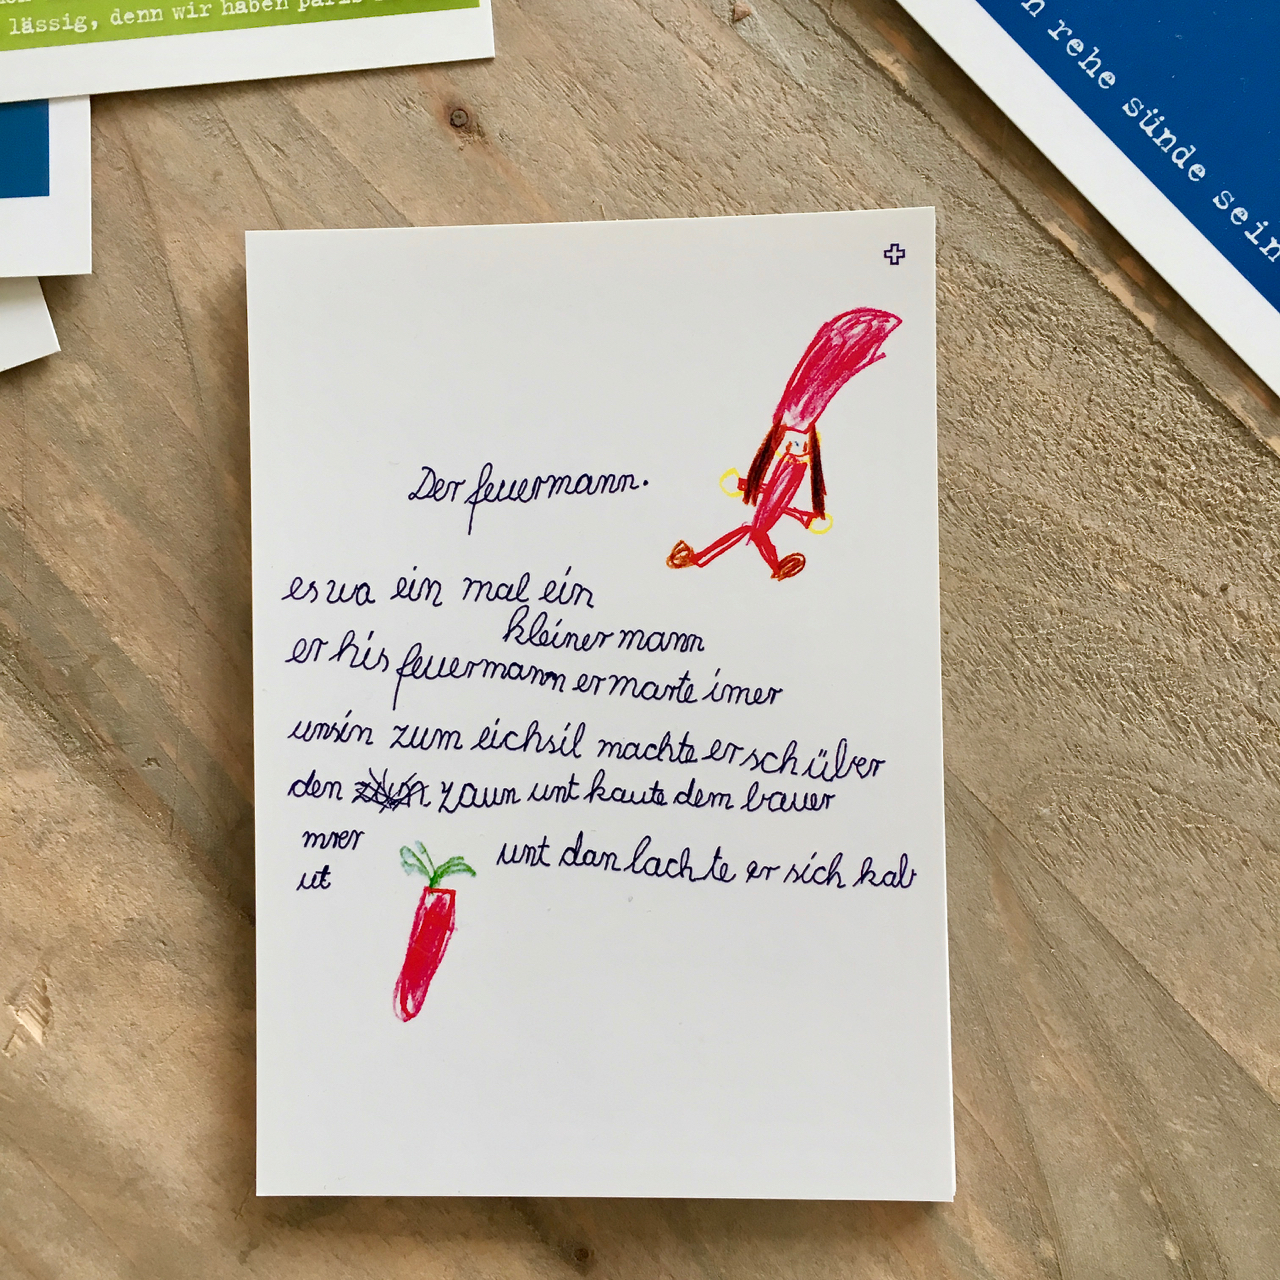 lässig, denn wir haben paris
n rehe sünde sein
Der feuermann.
es wa ein mal ein
kleiner mann
er his feuermann er marte imer
unsin zum eichsil machte er sch über
den zaun unt kaute dem bauer
mrer
ut
unt dan lachte er sich kab